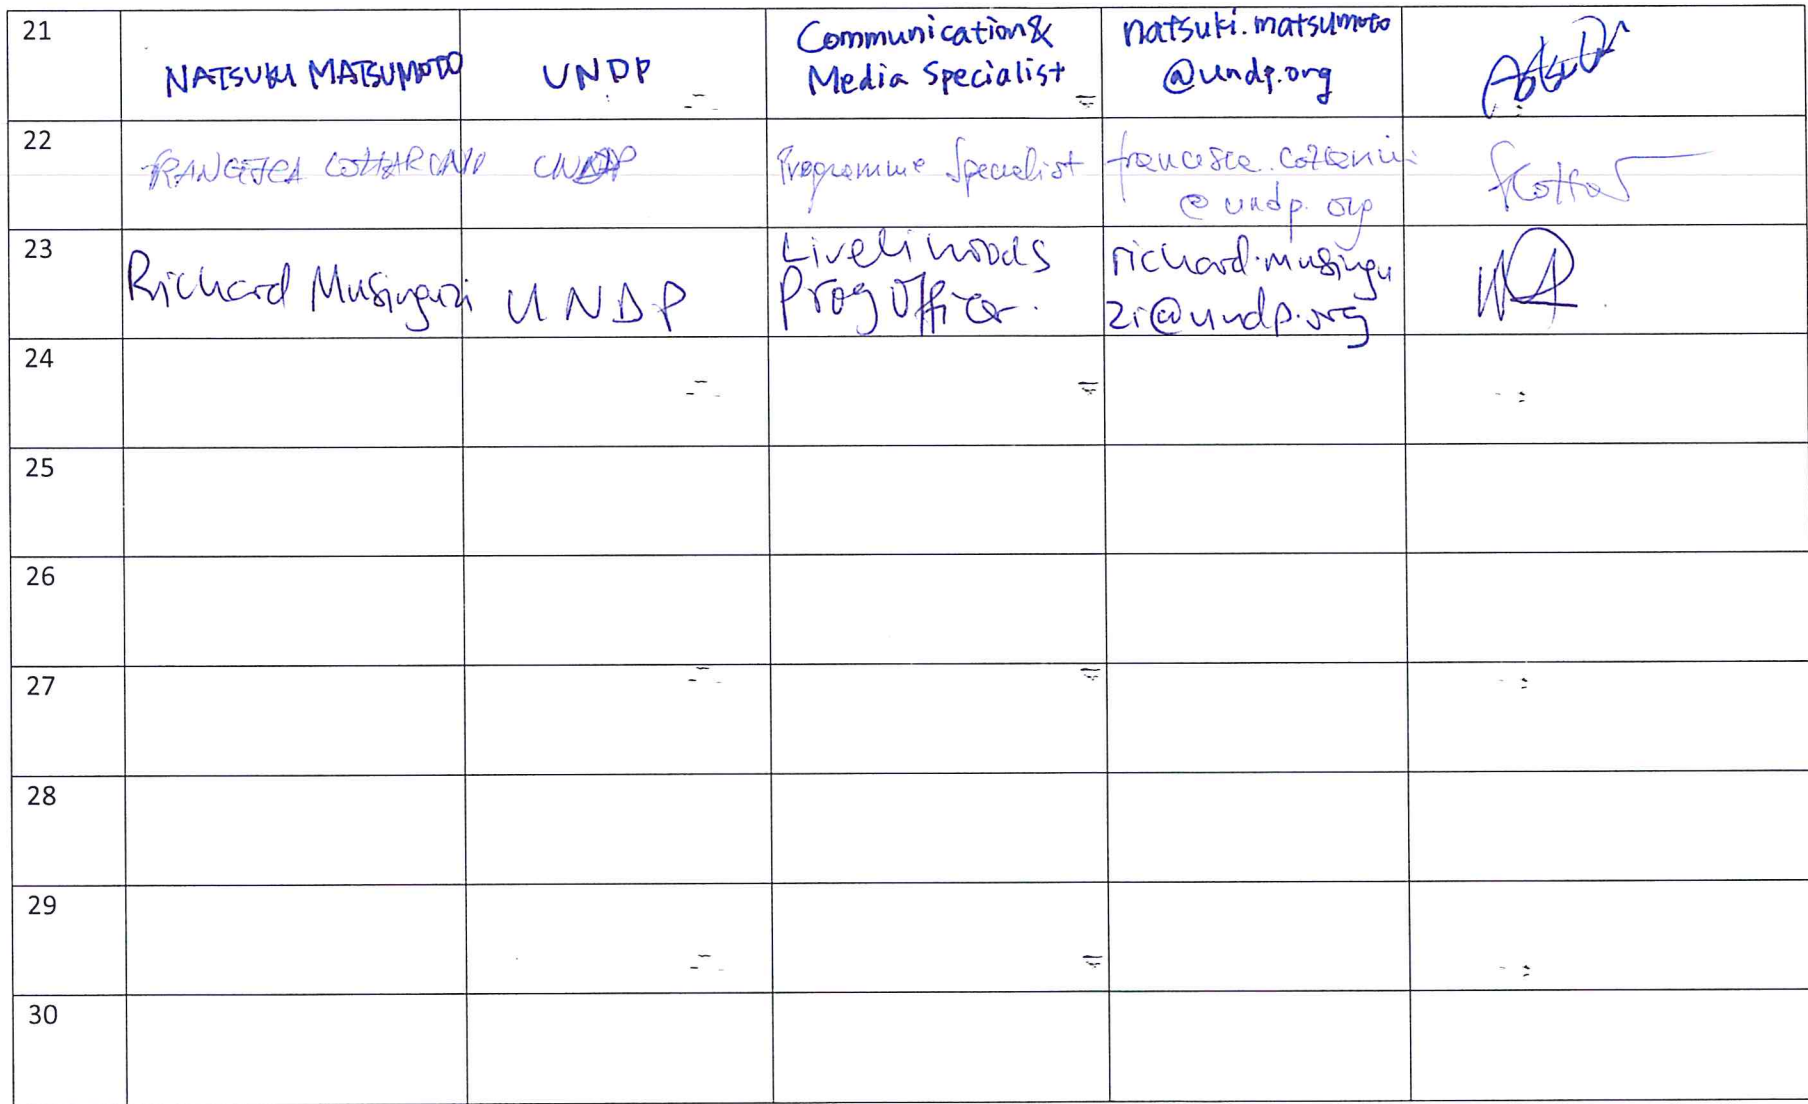 21
NATSUKI MATSUMOTO
UNDP
Communication &
Media Specialist
natsuki.matsumoto
@undp.org
22
UNDP
Programme Specialist
francesca.
@undp.org
23
Richard Musinguzi
UNDP
Livelihoods
Prog Officer.
richard.musingu
zi@undp.org
24
25
26
27
28
29
30